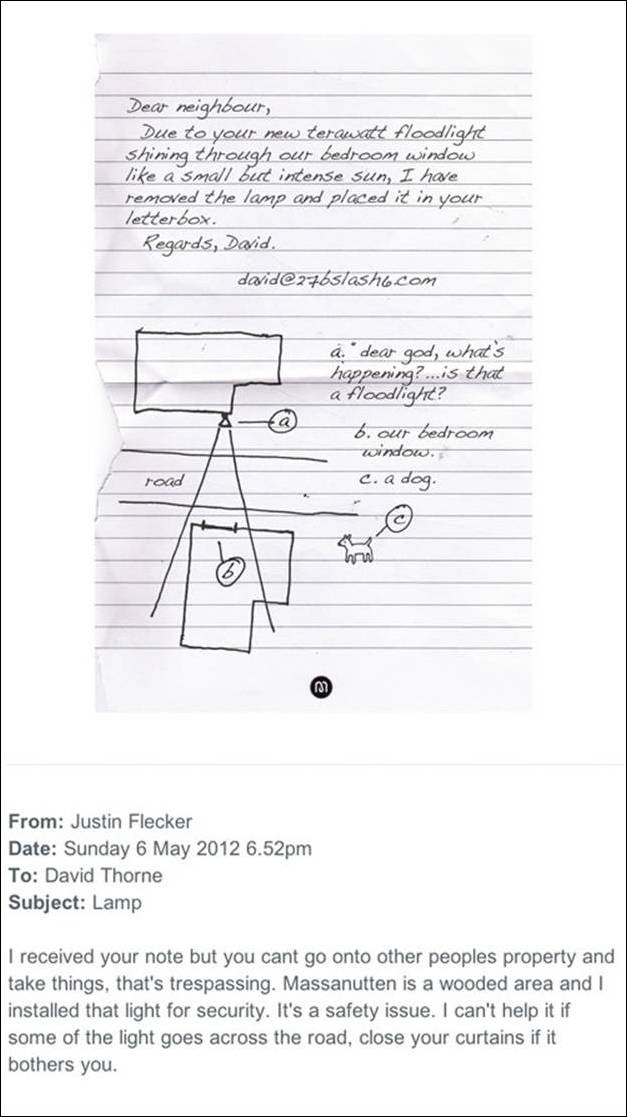 Dear neighbour,
Due to your new terawatt floodlight
shining through our bedroom window
like a small but intense sun, I have
removed the lamp and placed it in your
letterbox.
Regards, David.
david@27bslash6.com
a. "dear god, what's
happening?...is that
a floodlight?
b. our bedroom
window.
c. a dog.
a
road
c
b
From: Justin Flecker
Date: Sunday 6 May 2012 6.52pm
To: David Thorne
Subject: Lamp
I received your note but you cant go onto other peoples property and
take things, that's trespassing. Massanutten is a wooded area and I
installed that light for security. It's a safety issue. I can't help it if
some of the light goes across the road, close your curtains if it
bothers you.